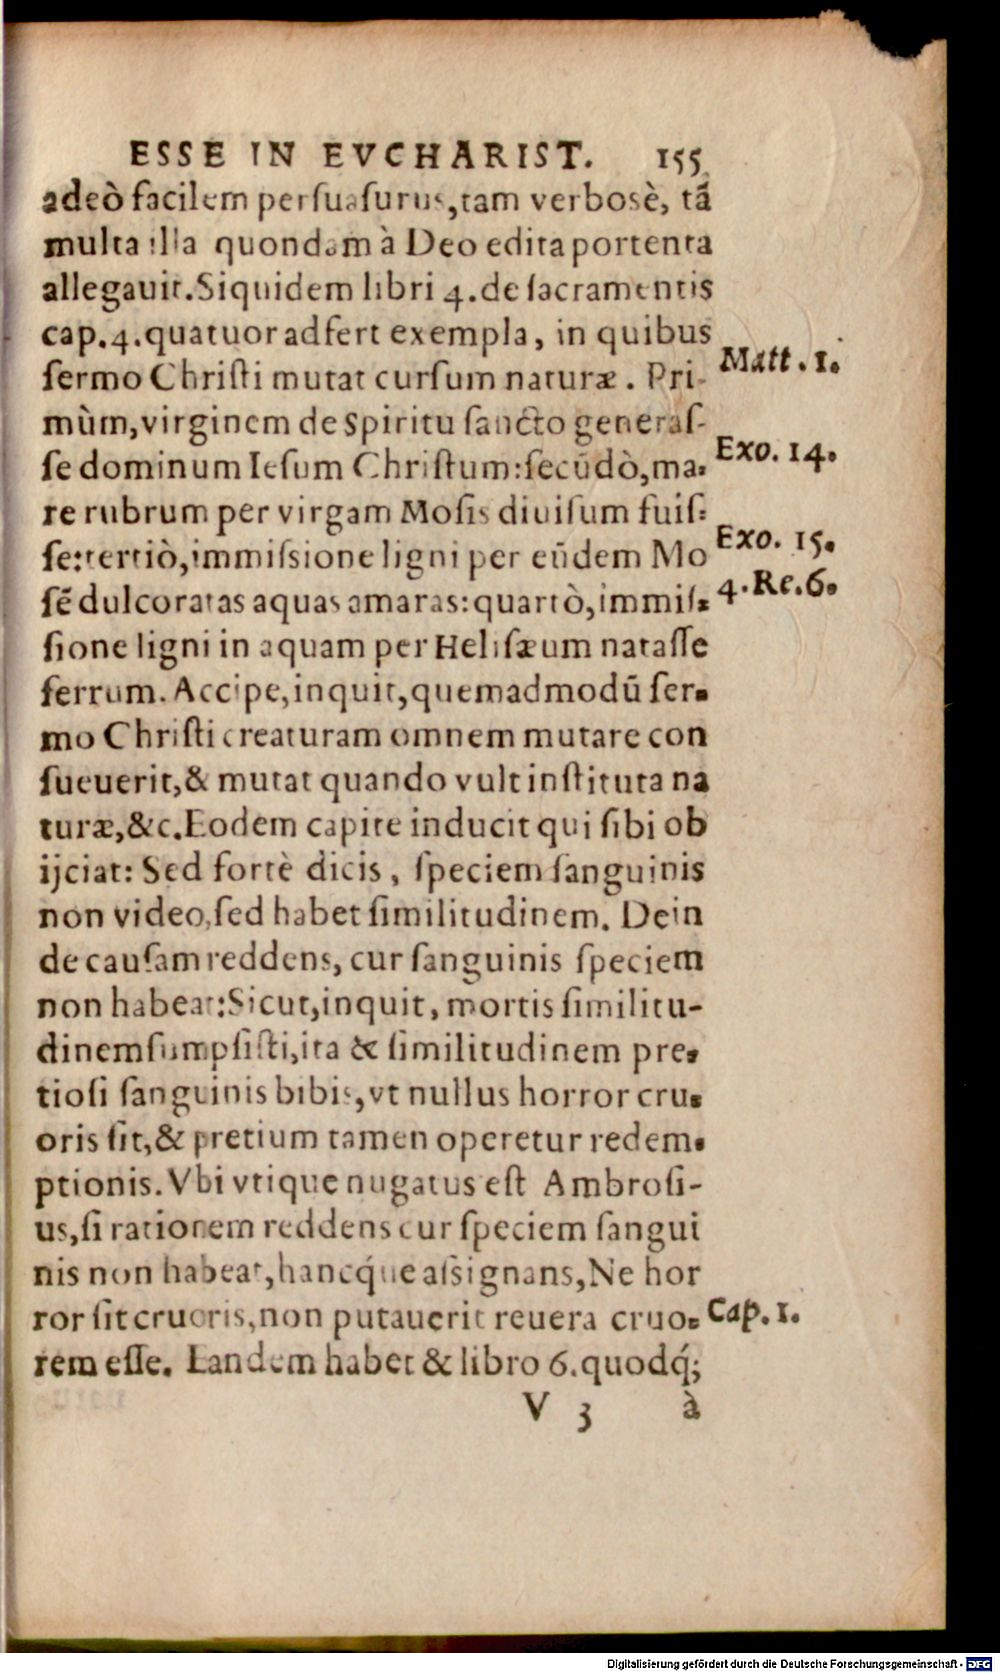 ESSE IN EVCHARIST. 155
adeò facilem persuasurus, tam verbosè, tã
multa illa quondam à Deo edita portenta
allegauit. Siquidem libri 4. de sacramentis
cap. 4. quatuor adfert exempla, in quibus
sermo Christi mutat cursum naturæ. Pri-
Matt. 1.
mùm, virginem de Spiritu sancto generas-
se dominum Iesum Christum: secũdò, ma-
Exo. 14.
re rubrum per virgam Mosis diuisum fuis-
se: tertiò, immissione ligni per eũdem Mo
Exo. 15.
sẽ dulcoratas aquas amaras: quartò, immis-
4. Re. 6.
sione ligni in aquam per Helisæum natasse
ferrum. Accipe, inquit, quemadmodũ ser-
mo Christi creaturam omnem mutare con
sueuerit, & mutat quando vult instituta na
turæ, &c. Eodem capite inducit qui sibi ob
ijciat: Sed fortè dicis, speciem sanguinis
non video, sed habet similitudinem. Dein
de causam reddens, cur sanguinis speciem
non habeat: Sicut, inquit, mortis similitu-
dinem sumpsisti, ita & similitudinem pre-
tiosi sanguinis bibis, vt nullus horror cru-
oris sit, & pretium tamen operetur redem-
ptionis. Vbi vtique nugatus est Ambrosi-
us, si rationem reddens cur speciem sangui
nis non habeat, hancq́ue assignans, Ne hor
ror sit cruoris, non putauerit reuera cruo-
Cap. 1.
rem esse. Eandem habet & libro 6. quodq́;
V 3 à
Digitalisierung gefördert durch die Deutsche Forschungsgemeinschaft - DFG